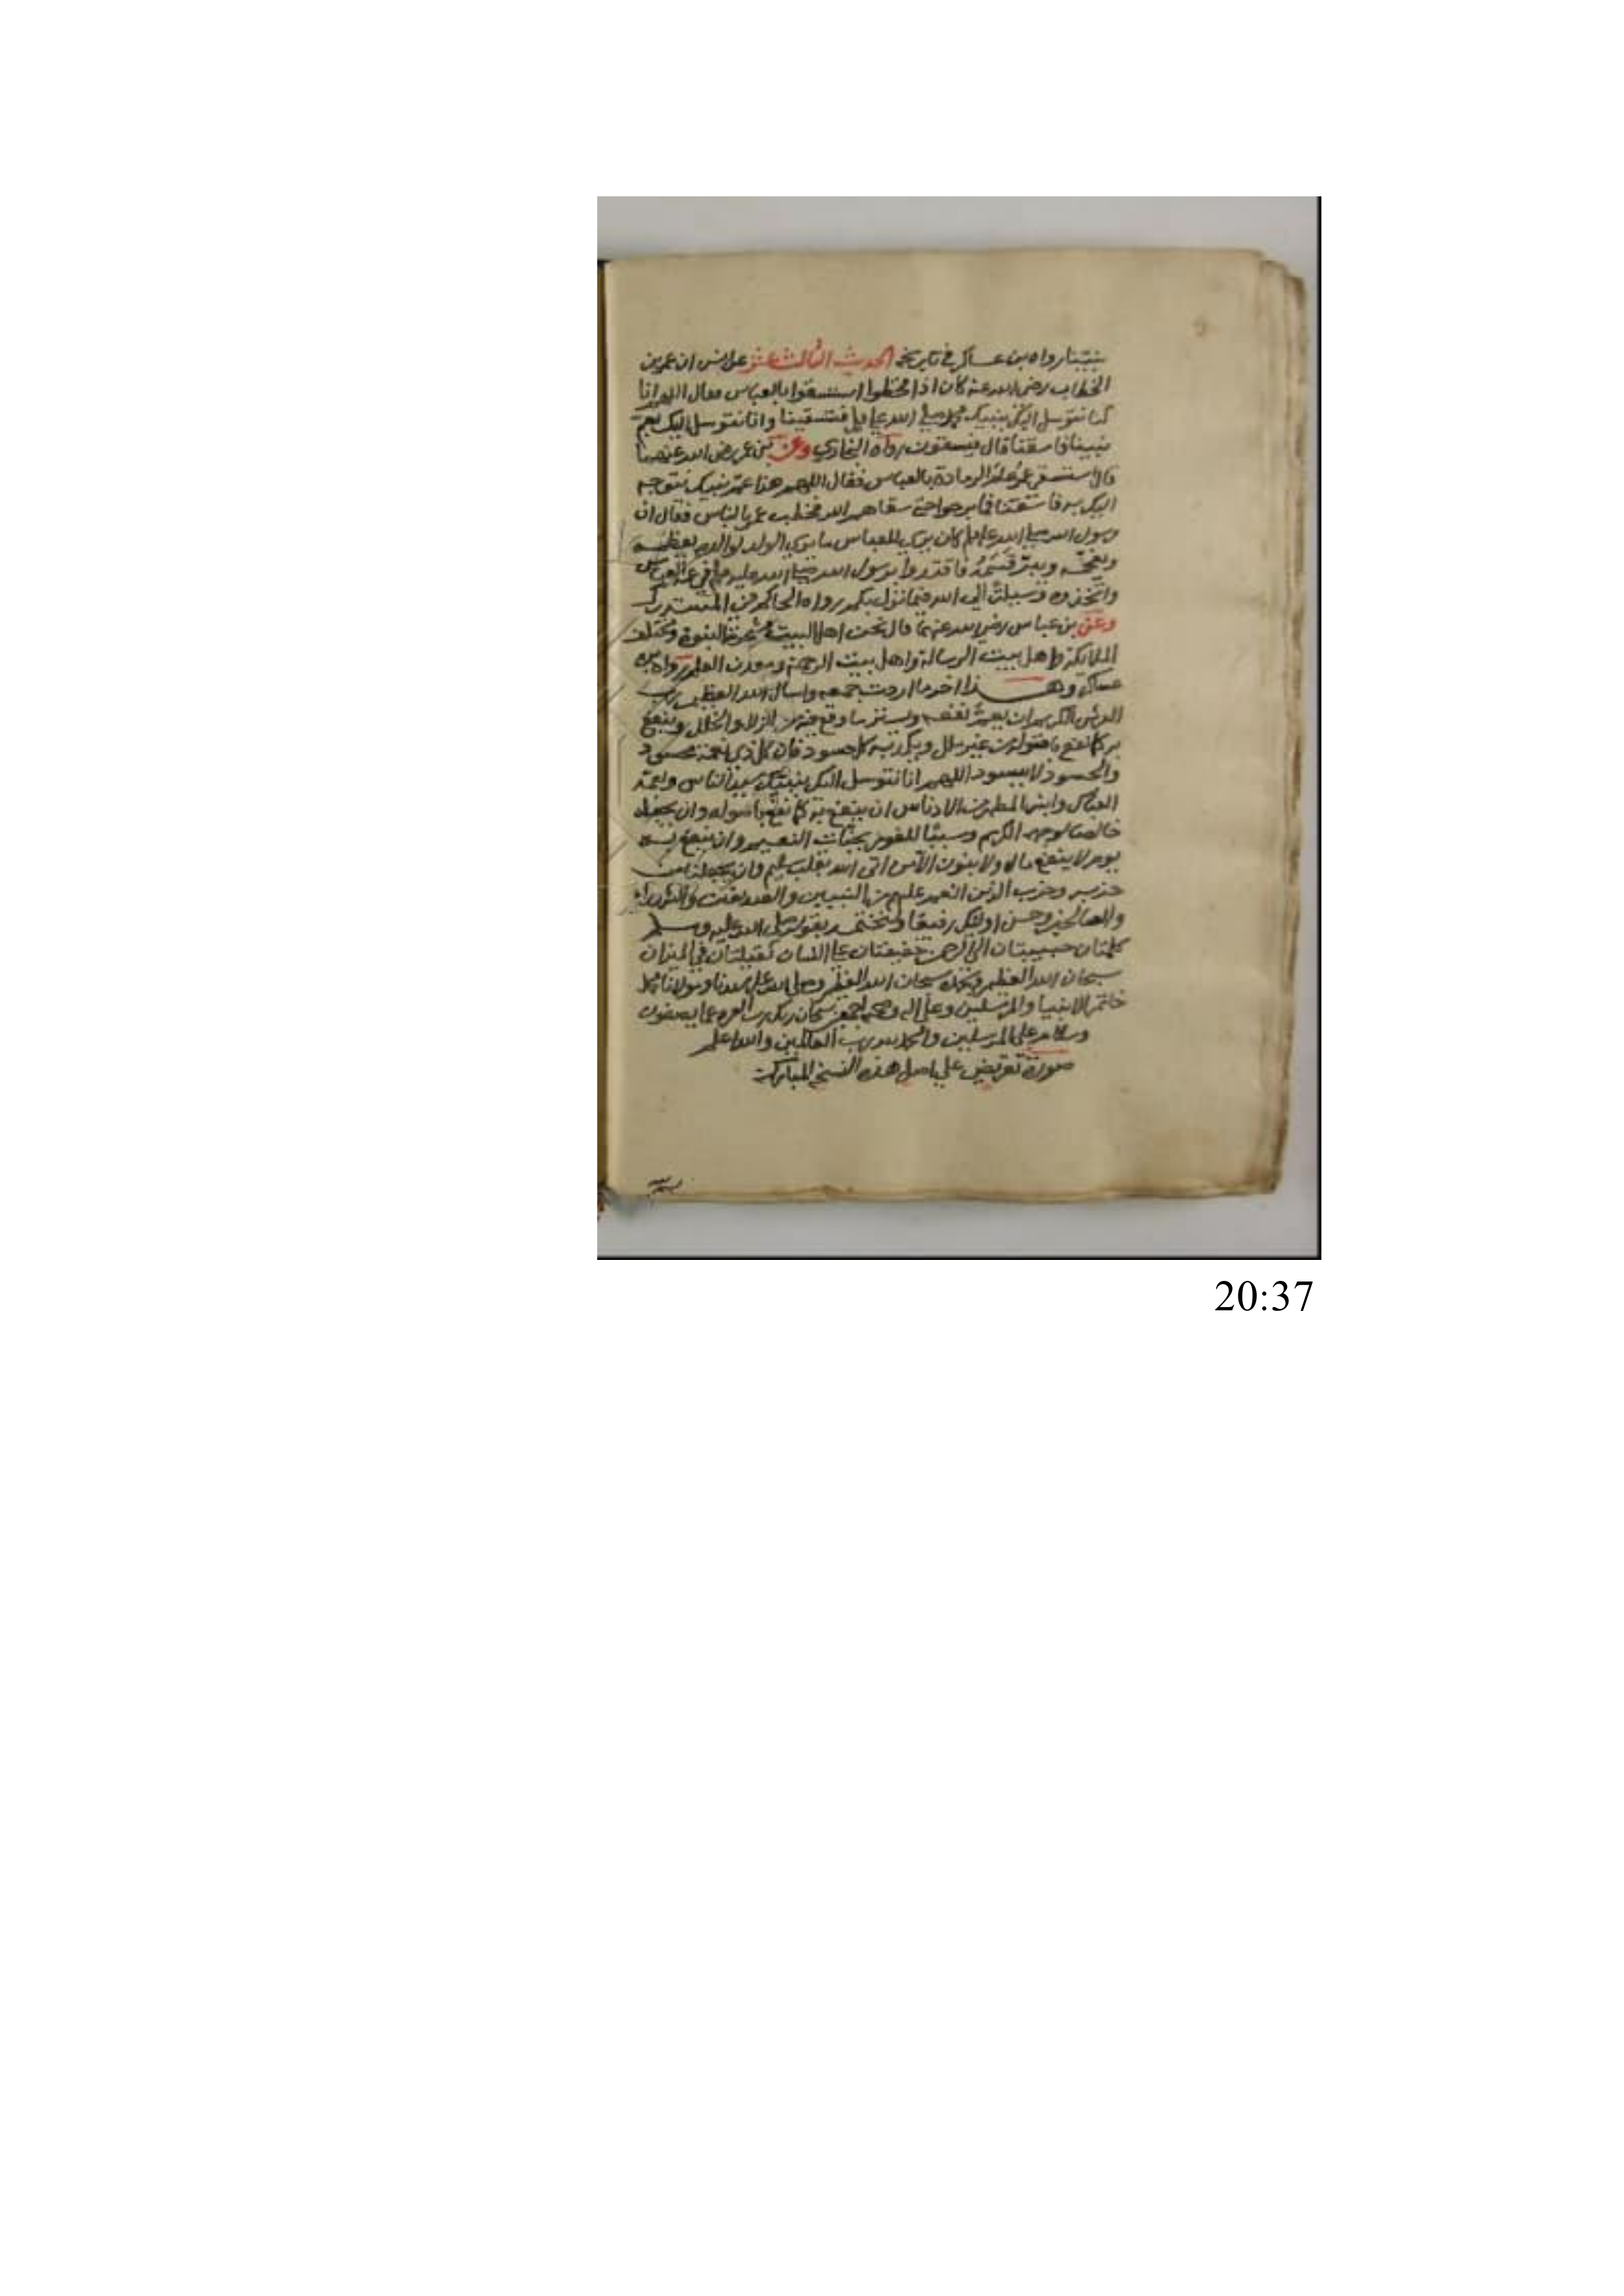 رواه بن عساكر في تاريخه الحديث الثالث عشر عن انس ان عمر بن
الخطاب رضي الله عنه كان اذا قحطوا استسقوا بالعباس فقال اللهم انا
كنا نتوسل اليك بنبيك محمد صلى الله عليه وسلم فتسقينا وانا نتوسل اليك بعم
نبينا فاسقنا قال فيسقون رواه البخاري وعن بن عمر رضي الله عنهما
قال استسقى عمر عام الرمادة بالعباس فقال اللهم هذا عم نبيك نتوجه
اليك به فاسقنا فما برحوا حتى سقاهم الله فخطب عمر بالناس فقال ان
رسول الله صلى الله عليه وسلم كان يرى للعباس ما يرى الولد لوالده يعظمه
ويفخمه ويبر قسمه فاقتدوا برسول الله صلى الله عليه وسلم في عمه العباس
واتخذوه وسيلة الى الله فيما نزل بكم رواه الحاكم في المستدرك
وعن بن عباس رضي الله عنهما قال نحن اهل البيت شجرة النبوة ومختلف
الملايكة واهل بيت الرسالة واهل بيت الرحمة ومعدن العلم رواه بن
عساكر وهذا اخر ما اردت جمعه واسال الله العظيم رب
العرش الكريم ان يعم نفعه ويستر ما وقع فيه من الزلل والخلل وينفع
به كما نفع باصوله من غير ملل ويكمد به كل حسود فان كل ذي نعمة محسود
والحسود لا يسود اللهم انا نتوسل اليك بنبيك سيد الناس وبعمه
العباس وابنه المطهر من الادناس ان ينفع به كما نفع باصوله وان يجعله
خالصا لوجهه الكريم وسببا للفوز بجنات النعيم وان ينفع به
يوم لا ينفع مال ولا بنون الا من اتى الله بقلب سليم وان يجعلنا من
حزبه وحزب الذين انعم عليهم من النبيين والصديقين والشهداء
والصالحين وحسن اوليك رفيقا ونختم بقوله صلى الله عليه وسلم
كلمتان حبيبتان الى الرحمن خفيفتان على اللسان ثقيلتان في الميزان
سبحان الله وبحمده سبحان الله العظيم وصلى الله على سيدنا ومولانا محمد
خاتم الانبيا والمرسلين وعلى اله وصحبه اجمعين سبحان ربك رب العزة عما يصفون
وسلام على المرسلين والحمد لله رب العالمين والله اعلم
صورة تقريض على اصل هذه النسخة المباركة
20:37